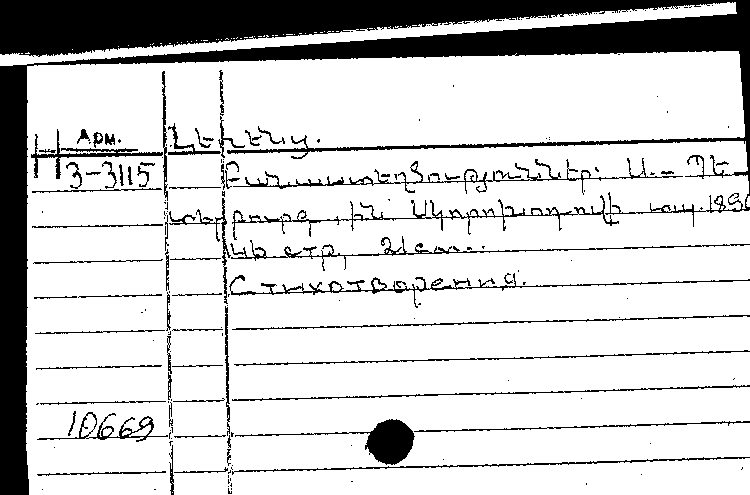 Арм.
3-3115
Լեւենց.
Բանաստեղծություններ: Ս.- Պե
տերբուրգ, Ի.Ն. Սկորոխոդովի տպ. 189
46 стр, 21см.
Стихотворения.
10669